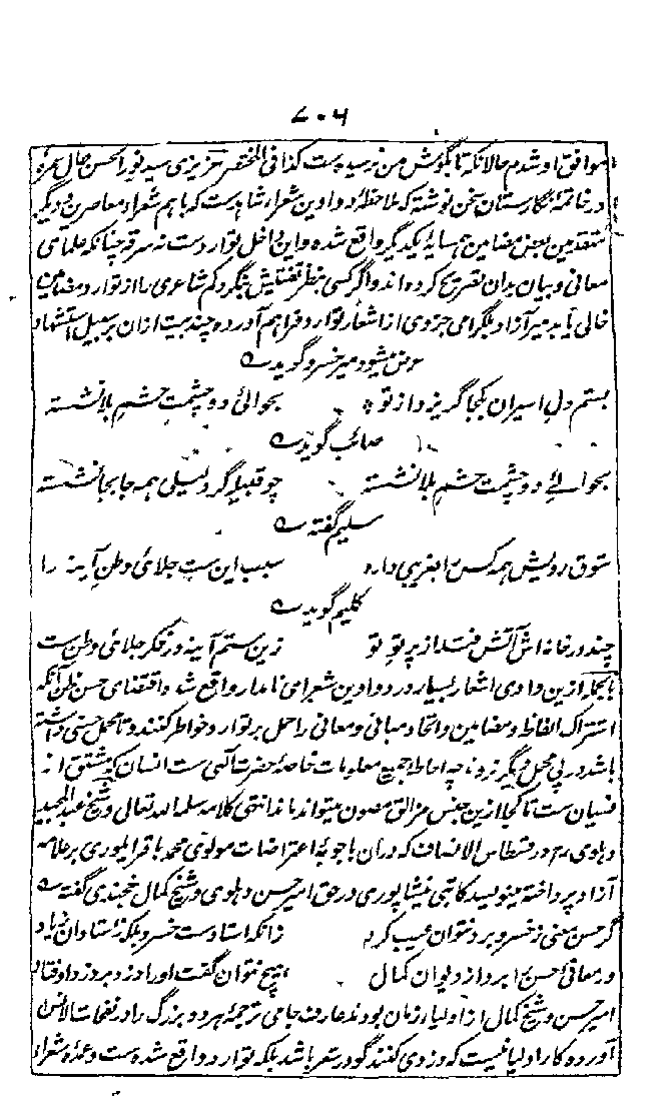 ۷۰۶
موافق او شدم حالانکہ تا گوش من نرسیدہ ست کذا فی المختصر عزیزی سید نور الحسن خان سلمہ
در خاتمۂ نگارستان سخن نوشتہ کہ ملاحظۂ دواوین شعرا شاہد ست کہ باہم شعراء معاصرین و دیگر
متقدمین بعض مضامین ہمسایۂ یکدیگر واقع شدہ و این داخل توارد ست نہ سرقہ چنانکہ علمای
معانی و بیان بدان تصریح کردہ اند و اگر کسی بنظر تفتیش بنگرد کم شاعری را از توارد مضامین
خالی یابد میر آزاد بلگرامی جزوی از اشعار توارد فراہم آوردہ چند بیت ازان بر سبیل استشہاد
عرض میشود میر خسرو گوید ؎
بستم دل اسیران بکجا گریزد از تو بحوالی دو چشمت حشم بلا نشستہ
صائب گوید ؎
بحوالیٔ دو چشمت حشم بلا نشستہ چو قبیلہ گرد لیلی ہمہ جا بجا نشستہ
سلیم گفتہ ؎
شوق رویش ہمہ کس را بغریبی دارد سبب این ست جلای وطن آینہ را
کلیم گوید ؎
چند در خانہ اش آتش فتد از پرتو تو زین ستم آینہ در فکر جلای وطن ست
بالجملہ ازین وادی اشعار بسیار در دواوین شعرای نامدار واقع شدہ و اقتضای حسن ظن آنکہ
اشتراک الفاظ و مضامین و اتحاد مبانی و معانی را حمل بر توارد خواطر کنند و تا محمل حسنی داشتہ
باشد در پی محمل دیگر نروند چہ احاطۂ جمیع معلومات خاصۂ حضرت آلہی ست انسان کہ مشتق از
نسیان ست تا کجا ازین جنس مزالق مصون میتواند ماند انتہی کلامہ سلمہ اللہ تعالی و شیخ عبد المجید
دہلوی رح در قسطاس الانصاف کہ دران باجوبۂ اعتراضات مولوی محمد باقر ایلوری بر علامہ
آزاد پرداختہ مینویسد کاتبی نیشاپوری در حق امیر حسن دہلوی و شیخ کمال خجندی گفتہ ؎
گر حسن معنی ز خسرو برد نتوان عیب کرد زانکہ استاد ست خسرو بلکہ ز استادان زیاد
ور معانی حسن را برد از دیوان کمال ہیچ نتوان گفت او را دزد بر دزد اوفتاد
امیر حسن و شیخ کمال از اولیاء زمان بودند عارف جامی ترجمۂ ہر دو بزرگ را در نفحات الانس
آوردہ کار اولیا نیست کہ دزدی کنند گو در شعر باشد بلکہ توارد واقع شدہ ست و عمدۂ شعراء